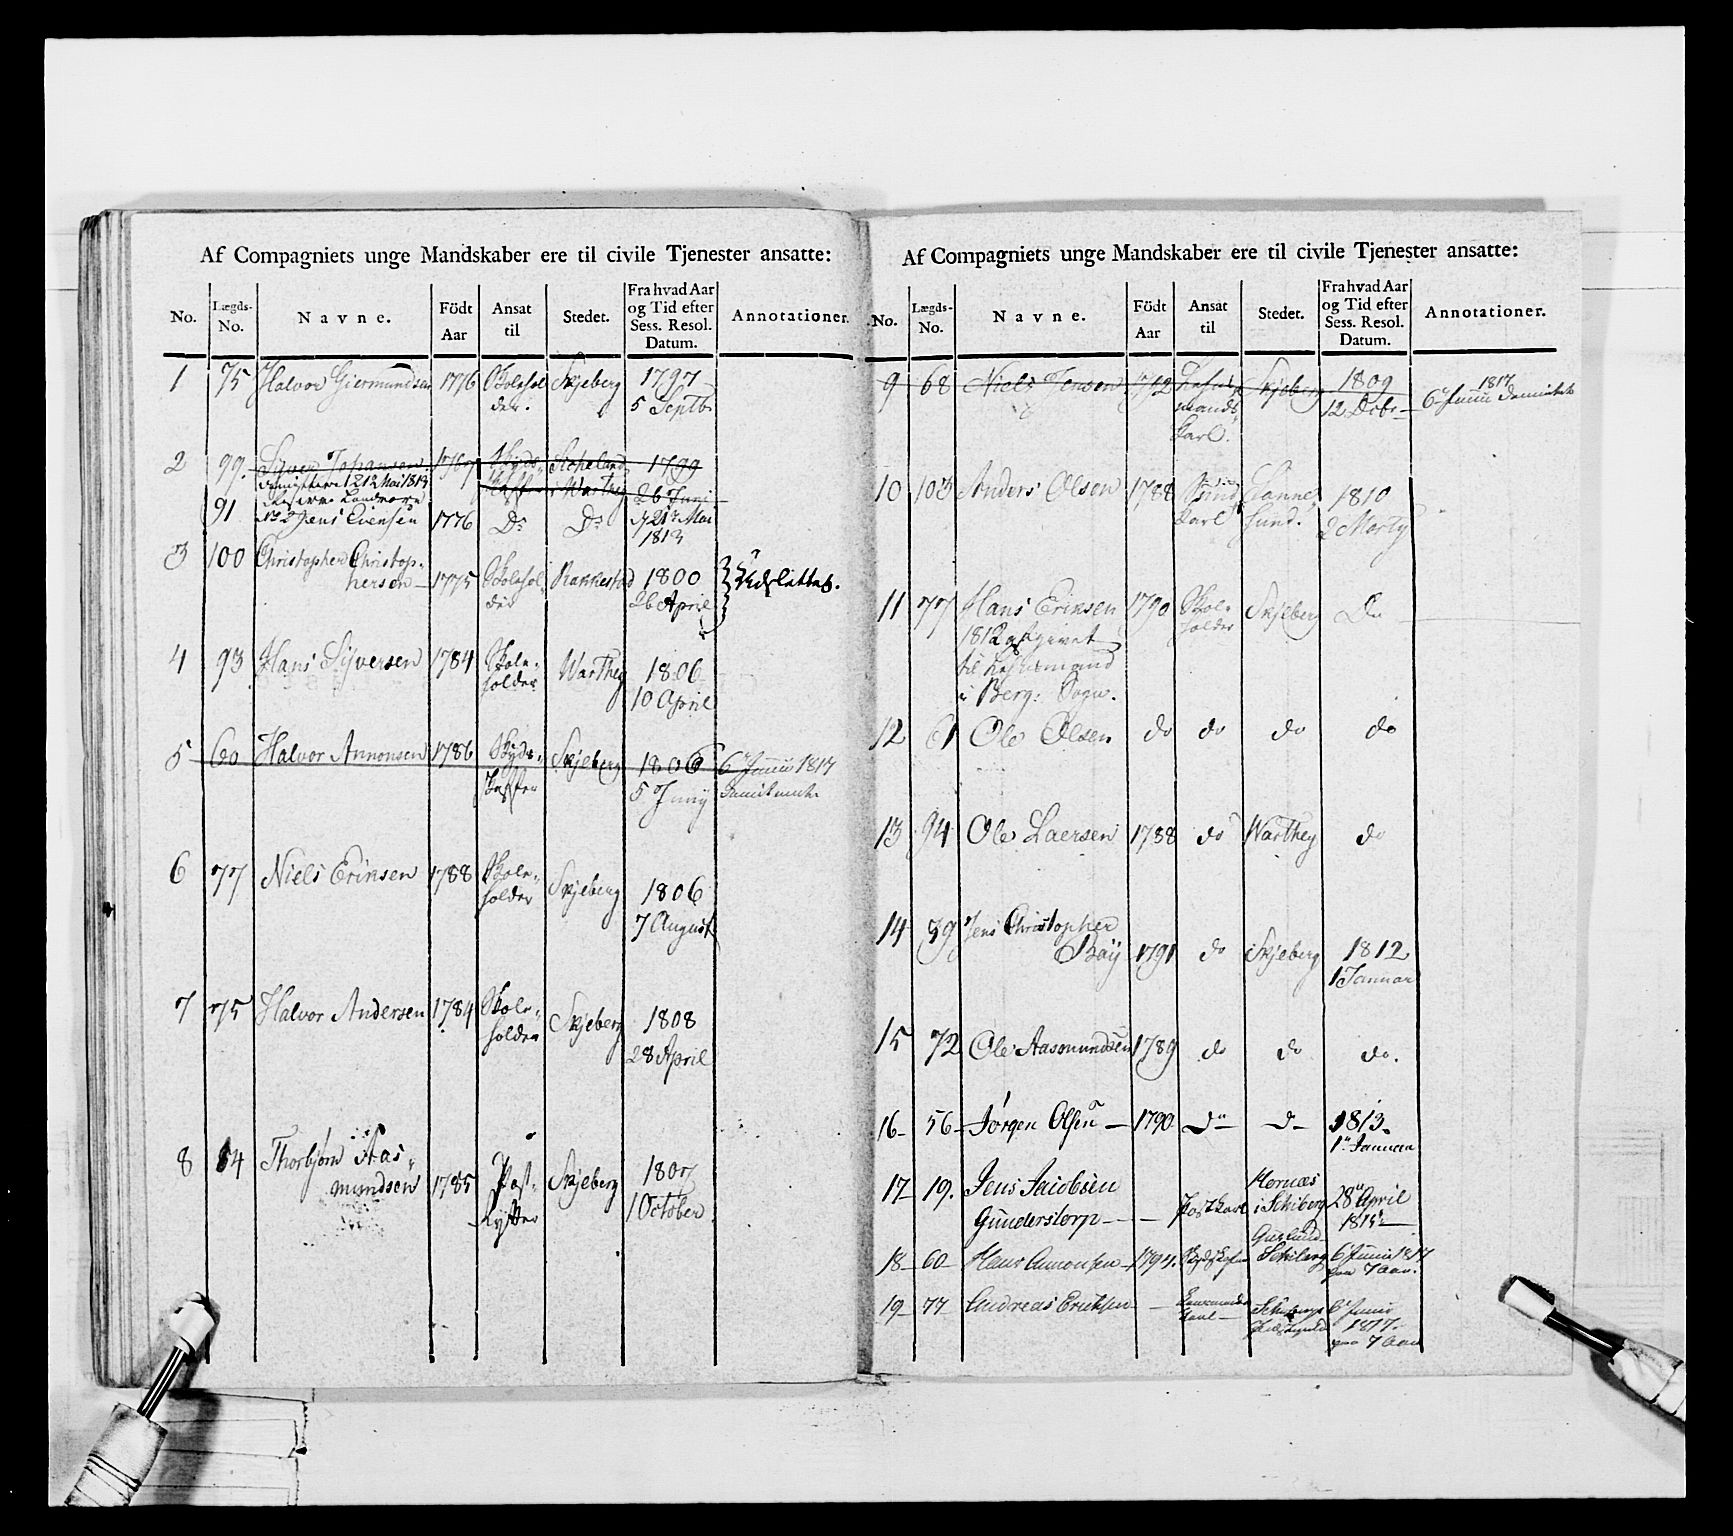 Af Compagniets unge Mandskaber ere til civile Tjenester ansatte:
No. Lægds-No. Navne. Födt Aar Ansat til Stedet. Fra hvad Aar og Tid efter Sess. Resol. Datum. Annotationer.
1 75 Halvor Giermundsen 1776 Skolehol Skjeberg 1797
der. 5 Septb
2 99 Syver Johansen 1767 Skyds 1799
Skaffer i Warthey 26 Juni
1813
91 Jens Evensen 1776 Do Do 21 Mai
1813
3 100 Christopher Christop-
hersen 1775 Skolehol Rakkestad 1800 Udslettes.
der 26 April
4 93 Hans Syversen 1784 Skole- Warthey 1806
holder 10 April
5 60 Halvor Amonsen 1786 Skyds- Skjeberg 1806 6 Junii 1817
Skaffer 5 Juny
6 77 Niels Eriksen 1788 Skole- Skjeberg 1806
holder 7 August
7 75 Halvor Andersen 1784 Skole- Skjeberg 1808
holder 28 April
8 84 Thorbjørn Aas-
mundsen 1785 Post- Skjeberg 1807
Rytter 1 October
Af Compagniets unge Mandskaber ere til civile Tjenester ansatte:
No. Lægds-No. Navne. Födt Aar Ansat til Stedet. Fra hvad Aar og Tid efter Sess. Resol. Datum. Annotationer.
9 68 Niels Jensen Skjeberg 1809 1817
mands 12 Decbr 6 Junii
Karl.
10 103 Anders Olsen 1788 Sund Sanne 1810
Karl Sund. 2 Marty
11 77 Hans Eriksen 1790 Skole- Skjeberg Do
holder
1812 afgivet
til
i Berg: Sogn.
12 61 Ole Olsen do do do do
13 94 Ole Laersen 1788 do Warthey do
14 39 Jens Christopher
Bay 1791 do Skjeberg 1812
1 Januar
15 72 Ole Aasmundsen 1789 do do do.
16 56 Jörgen Olsen 1790 do d 1813.
1 Januar
17 19. Jens Jacobsen Hornæs
Gunderstorp Postkarl i Schiberg 28 April
1815
18 60 Hans Amonsen 1794. Schiberg 6 Junii 1817
paa 7 Aar.
19 77 Andreas Eriksen 6 Junii
Karl 1817
paa 7 Aar